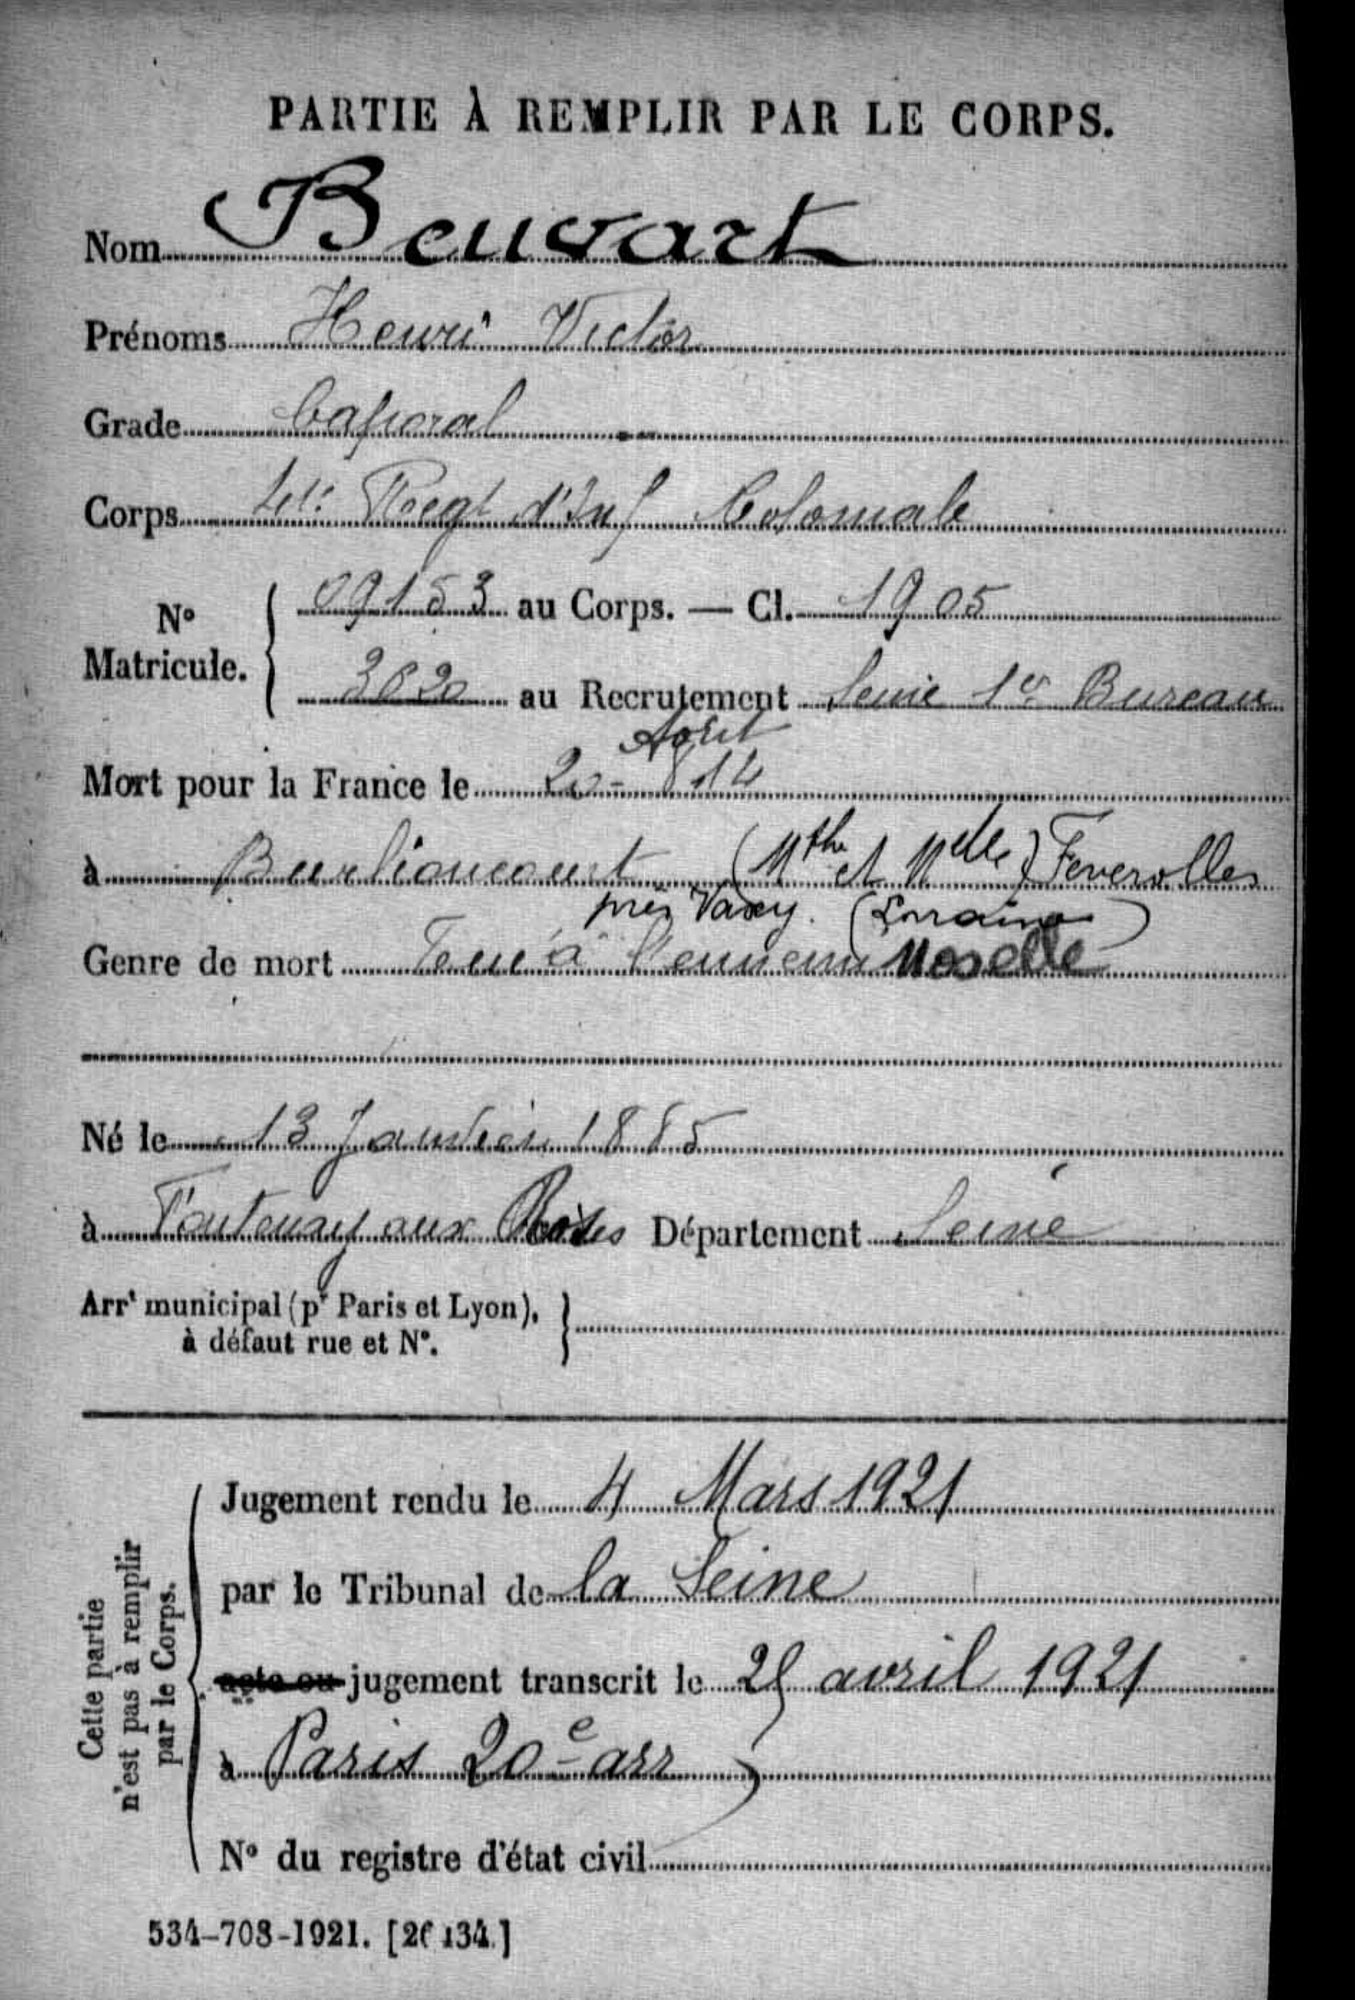 PARTIE À REMPLIR PAR LE CORPS.
Nom Beuvart
Prénoms Henri Victor
Grade Caporal
Corps Regt d'Inf Coloniale
N° Matricule. 09153 au Corps. — Cl. 1905
3620 au Recrutement Seine 1er Bureau
Août
Mort pour la France le 20-8 14
à Burlioncourt (Mthe et Melle) Feverolles
près Vaxy. (Lorraine)
Genre de mort Tué à l'ennemi Moselle
Né le 13 Janvier 1885
à Fontenay aux Roses Département Seine
Arrt municipal (pr Paris et Lyon),
à défaut rue et N°.
Cette partie
n'est pas à remplir
par le Corps.
Jugement rendu le 4 Mars 1921
par le Tribunal de la Seine
acte ou jugement transcrit le 25 avril 1921
à Paris 20e arr
N° du registre d'état civil
534-708-1921. [26134.]